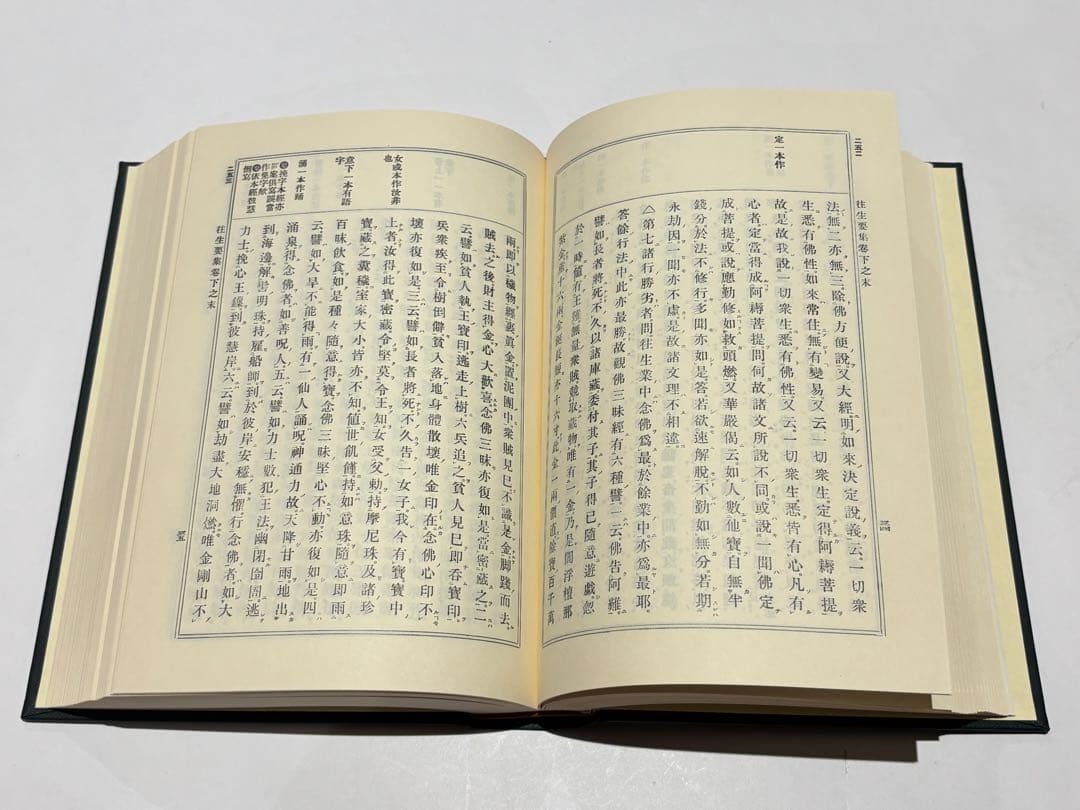 二五二
往生要集卷下之末
定一本作
法無二亦無三除佛方便說又大經明如來決定說義云一切衆
生悉有佛性如來常住無有變易又云一切衆生定得阿耨菩提
故是故我說一切衆生悉有佛性又云一切衆生悉皆有心凡有
心者定當得成阿耨菩提問何故諸文所說不同或說一聞佛定
成菩提或說應勤修如救頭燃又華嚴偈云如人數他寶自無半
錢分於法不修行多聞亦如是答若欲速解脫不勤如無分若期
永劫因一聞亦不虛是故諸文理不相違
△第七諸行勝劣者問往生業中念佛爲最於餘業中亦爲最耶
答餘行法中此亦最勝故觀佛三昧經有六種譬一云佛告阿難
譬如長者將死不久以諸庫藏委付其子其子得已隨意遊戲忽
於一時値有王難無量衆賊競取藏物唯有一金乃是閻浮檀那
十六兩金鋌長短亦十六寸此金一兩價直餘寶百千萬
兩卽以穢物纒裹眞金置泥團中衆賊見已不識是金脚踐而去
賊去之後財主得金心大歡喜念佛三昧亦復如是當密藏之二
云譬如貧人執王寶印逃走上樹六兵追之貧人見已卽呑寶印
兵衆疾至令樹倒僻貧人落地身體散壞唯金印在念佛心印不
壞亦復如是三云譬如長者將死不久告一女子我今有寶寶中
上者汝得此寶密藏令堅莫令王知女受父勅持摩尼珠及諸珍
寶藏之糞穢室家大小皆亦不知値世飢饉持如意珠隨意卽雨
百味飮食如是種々隨意得寶念佛三昧堅心不動亦復如是四
云譬如大旱不能得雨有一仙人誦呪神通力故天降甘雨地出
涌泉得念佛者如善呪人五云譬如力士數犯王法幽閉囹圄逃
到海邊解髻明珠持雇船師到於彼岸安穩無懼行念佛者如大
力士挽心王鎖到彼慧岸六云譬如劫盡大地洞燃唯金剛山不
女或本作汝非
也
意下一本有語
字
涌一本作踊
挽字本經亦
作
依本經彼慧
倒寫
二五三
往生要集卷下之末